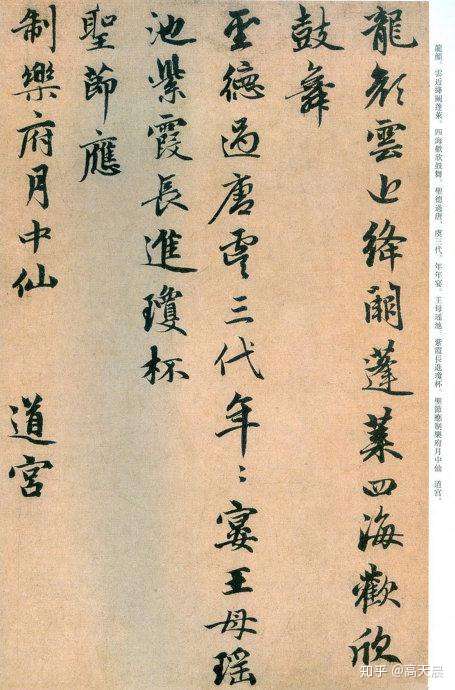 龍顏。雲近絳闕蓬萊。四海歡欣鼓舞。聖德過唐、虞三代。年年宴、王母瑤池。紫霞長進瓊杯。 聖節應制樂府月中仙 道宮。
龍顏雲近絳闕蓬萊四海歡欣
鼓舞
聖德過唐虞三代年〻宴王母瑤
池紫霞長進瓊杯
聖節應
制樂府月中仙 道宮
知乎 @高天晨